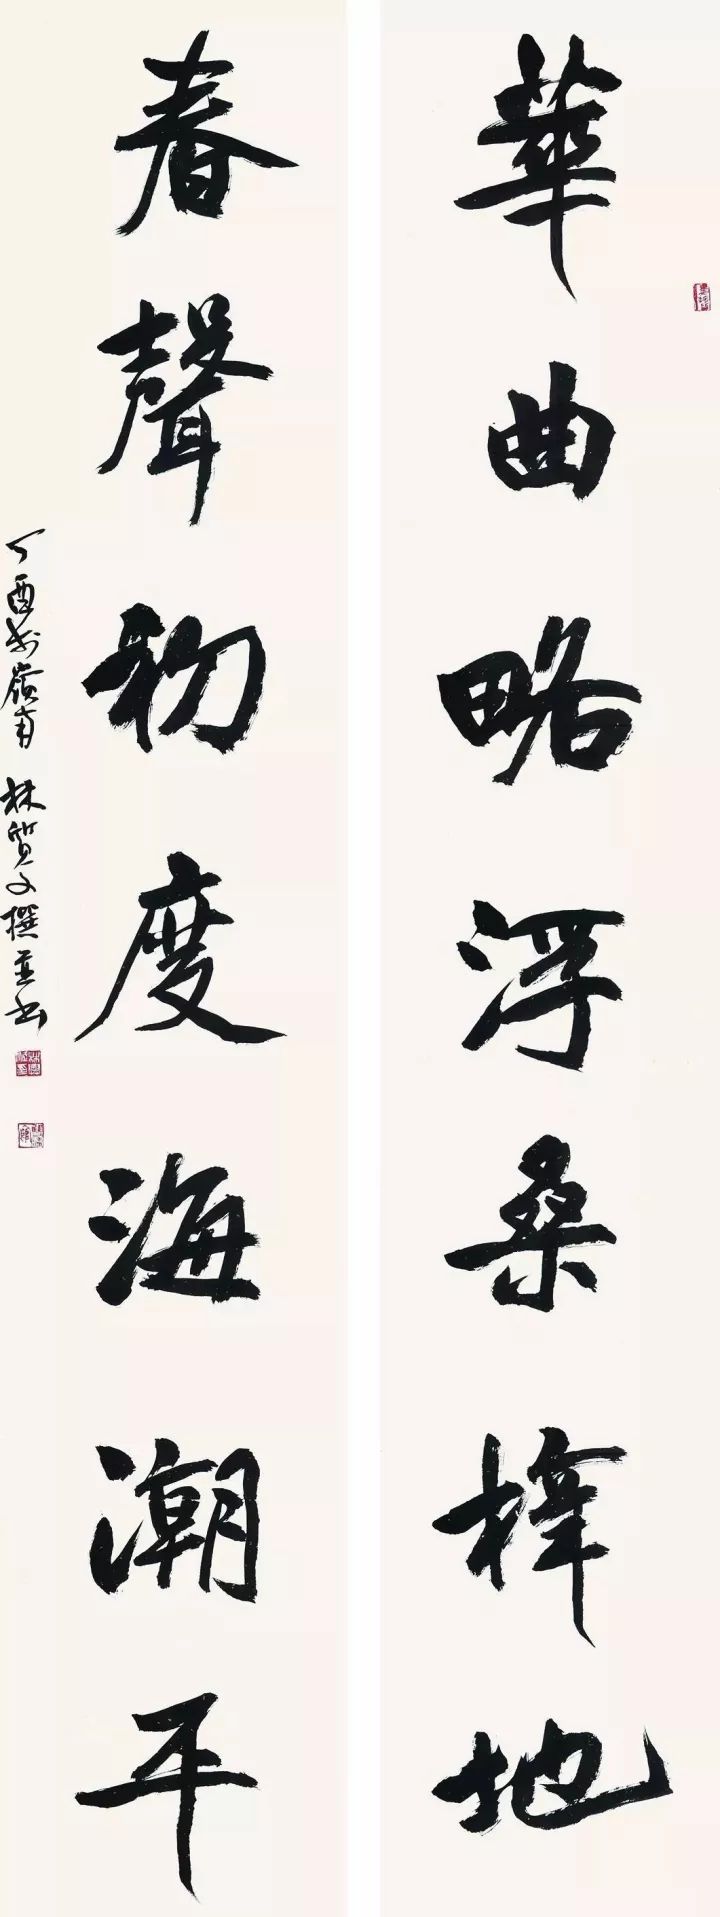 華曲略浮桑梓地
春聲初度海潮平
丁酉於嶺南 林質文撰並書